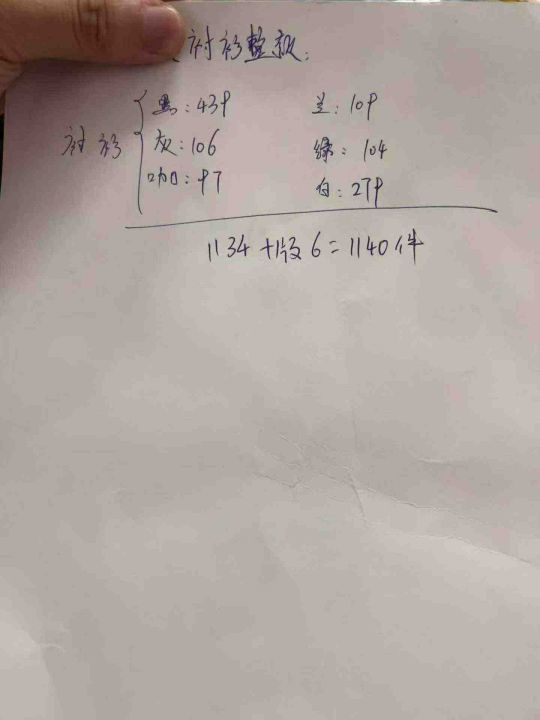 衬衫整
黑：439 兰：109
衬衫 灰：106 绿：104
咖：97 白：279
1134+版6=1140件